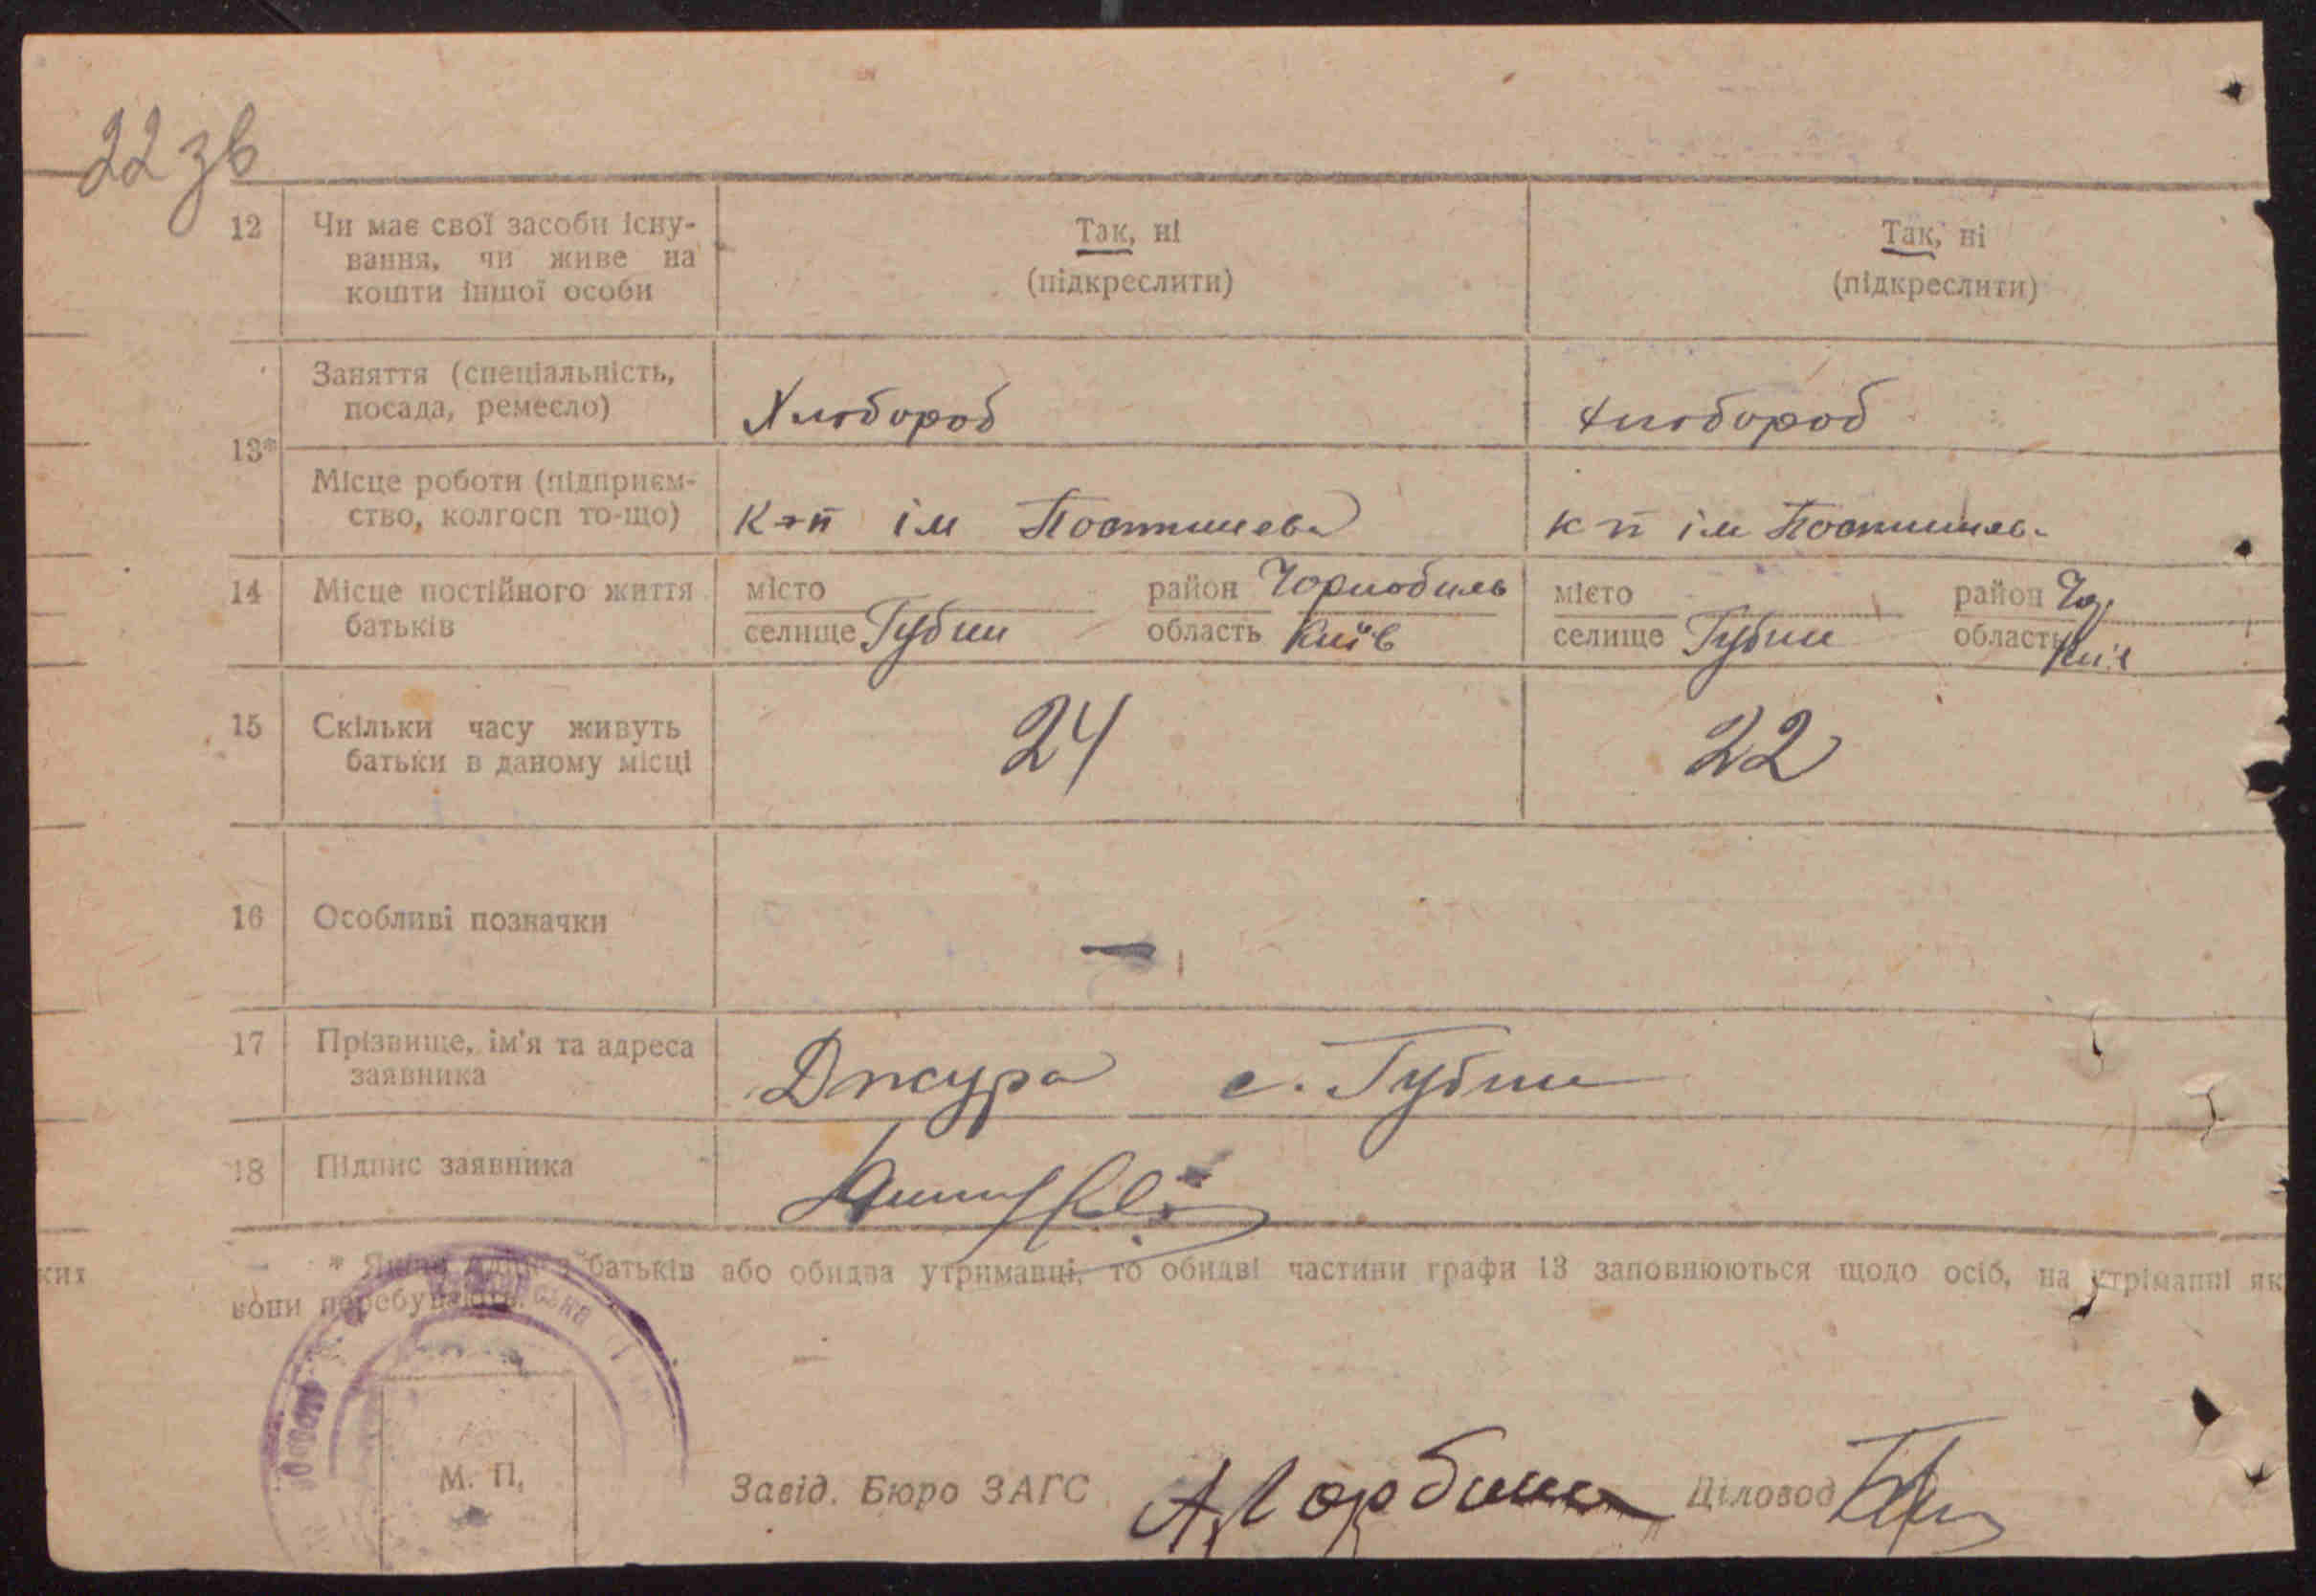 22 зв
12 Чи має свої засоби існу- Так, ні Так, ні
вання, чи живе на (підкреслити) (підкреслити)
кошти іншої особи
Заняття (спеціальність,
посада, ремесло) Хлібороб Хлібороб
13*
Місце роботи (підприєм-
ство, колгосп то-що) к-п ім Постишева к п ім Постишева
14 Місце постійного життя місто район Чорнобиль місто район Чор
батьків селище Губин область Київ селище Губин область Киів
15 Скільки часу живуть 24 22
батьки в даному місці
16 Особливі позначки —
17 Прізвище, ім'я та адреса
заявника Джура с. Губин
18 Підпис заявника
* Якщо один з батьків або обидва утриманці, то обидві частини графи 13 заповнюються щодо осіб, на утріманні як
ких
вони перебувають.
М. П.
Завід. Бюро ЗАГС Діловод